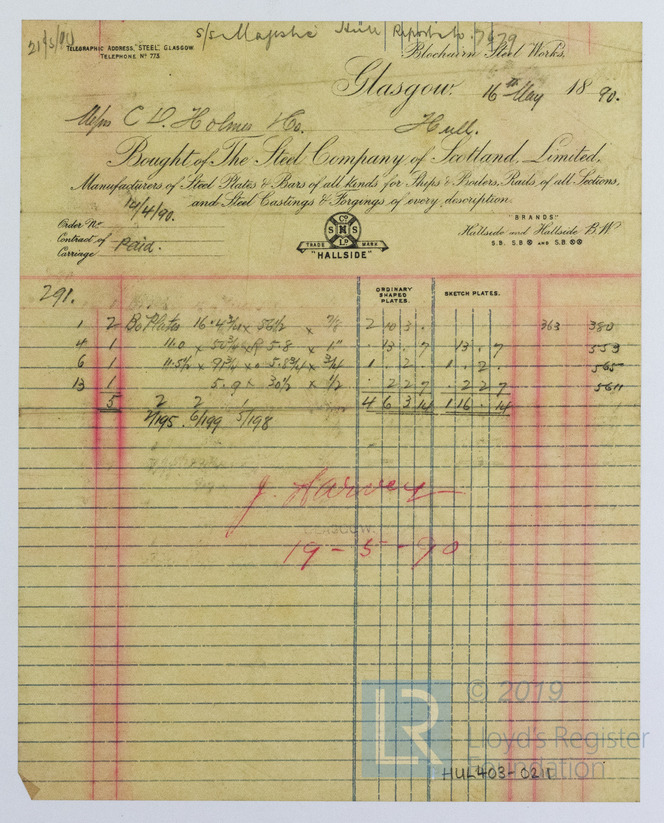 s/s Majestic Hull Report No. 7679
21/5/90
TELEGRAPHIC ADDRESS, "STEEL", GLASGOW
TELEPHONE Nº 773.
Blochairn Steel Works,
Glasgow, 16th May 1890.
Messrs C D. Holmes & Co. Hull.
Bought of The Steel Company of Scotland, Limited,
Manufacturers of Steel Plates & Bars of all kinds for Ships & Boilers, Rails of all Sections,
and Steel Castings & Forgings of every description.
14/4/90.
Order Nº
Contract of
Carriage paid.
Cº
S M S
Lº
TRADE MARK
"HALLSIDE"
"BRANDS"
Hallside and Hallside B.W
S.B. S.B AND S.B
291.
ORDINARY SHAPED PLATES. SKETCH PLATES.
1 2 Bo Plates 16.4¾ x 56½ x 7/8 2 10 3 . 363 380
4 1 11.0 x 5.8 x 1" . 13 . 7 . 13 . 7 553
6 1 11.5½ x 5.8¾ x ¾ 1 . 2 . 1 . 2 . 565
13 1 5.9 x 30½ x ½ . 2 2 7 . 2 2 7
5 2 2 1 4 6 3 14 1 16 . 14
2/195 . 6/199 5/198
J. Harvey
GLASGOW.
19-5-90
LR
© 2019
Lloyd's Register
Foundation
HUL403-0211